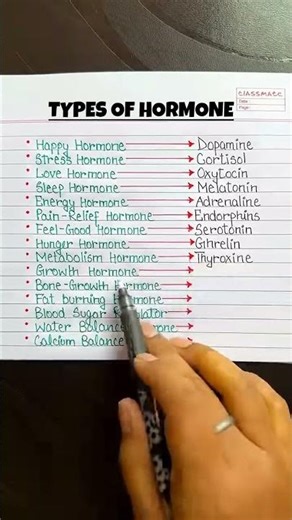 CLASSMATE
Date
Page
TYPES OF HORMONE
• Happy Hormone → Dopamine
• Stress Hormone → Cortisol
• Love Hormone → Oxytocin
• Sleep Hormone → Melatonin
• Energy Hormone → Adrenaline
• Pain-Relief Hormone → Endorphins
• Feel-Good Hormone → Serotonin
• Hunger Hormone → Ghrelin
• Metabolism Hormone → Thyroxine
• Growth Hormone →
• Bone-Growth Hormone →
• Fat burning Hormone →
• Blood Sugar →
• Water Balance →
• Calcium Balance →